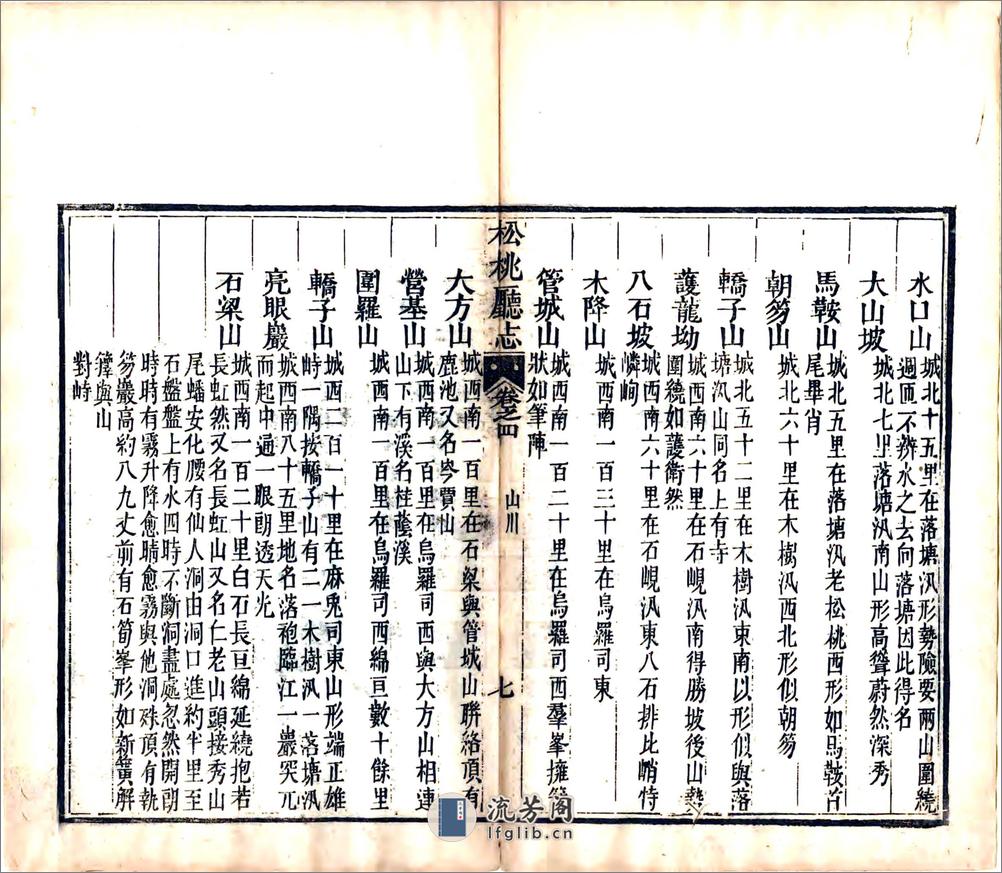 水口山
城北十五里在落塘汛形勢險要兩山圍繞
週匝不辨水之去向落塘因此得名
大山坡
城北七里落塘汛南山形高聳蔚然深秀
馬鞍山
城北五里在落塘汛老松桃西形如馬鞍首
尾畢肖
朝笏山
城北六十里在木樹汛西北形似朝笏
轎子山
城北五十二里在木樹汛東南以形似與落
塘汛山同名上有寺
護龍坳
城西南六十里在石峴汛南得勝坡後山勢
圍繞如護衛然
八石坡
城西南六十里在石峴汛東八石排比峭特
嶙峋
木降山
城西南一百三十里在烏羅司東
管城山
城西南一百二十里在烏羅司西羣峯擁簇
狀如筆陣
松桃廳志
卷之四
山川
七
大方山
城西南一百里在石梁與管城山聯絡頂有
鹿池又名岑賈山
營基山
城西南一百里在烏羅司西與大方山相連
山下有溪名桂蔭溪
圍羅山
城西南一百里在烏羅司西綿亘數十餘里
轎子山
城西二百一十里在麻兎司東山形端正雄
峙一隅按轎子山有二一木樹汛一落塘汛
亮眼巖
城西南八十五里地名落袍臨江一巖突兀
而起中通一眼朗透天光
石梁山
城西南一百二十里白石長亘綿延繞抱若
長虹然又名長虹山又名仁老山頭接秀山
尾蟠安化腰有仙人洞由洞口進約半里至
石盤盤上有水四時不斷洞盡處忽然開朗
時時有霧升降愈晴愈霧與他洞殊頂有執
笏巖高約八九丈前有石筍峯形如新簧解
籜與山
對峙
流芳阁
lfglib.cn